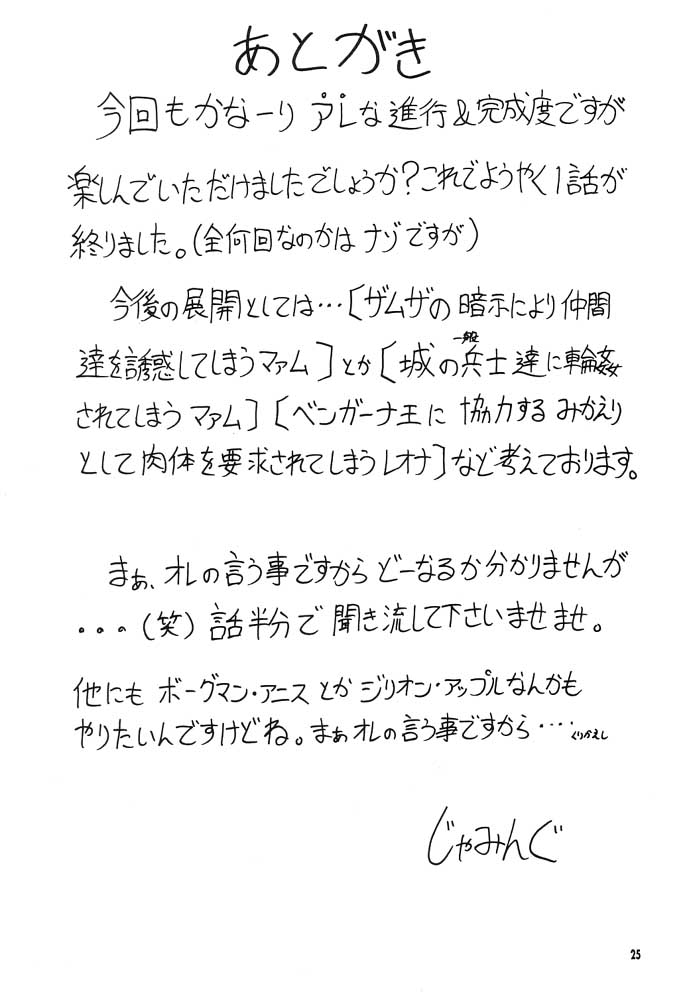 あとがき
今回もかなーりアレな進行&完成度ですが
楽しんでいただけましたでしょうか?これでようやく1話が
終りました。(全何回なのかはナゾですが)
今後の展開としては…[ザムザの暗示により仲間
達を誘惑してしまうマァム]とか[城の一般兵士達に輪姦
されてしまうマァム][ベンガーナ王に協力するみかえり
として肉体を要求されてしまうレオナ]など考えております。
まぁ、オレの言う事ですからどーなるか分かりませんが
・・・(笑)話半分で聞き流して下さいませませ。
他にもボーグマン・アニスとかジリオン・アップルなんかも
やりたいんですけどね。まぁオレの言う事ですから‥‥くりかえし
じゃみんぐ
25